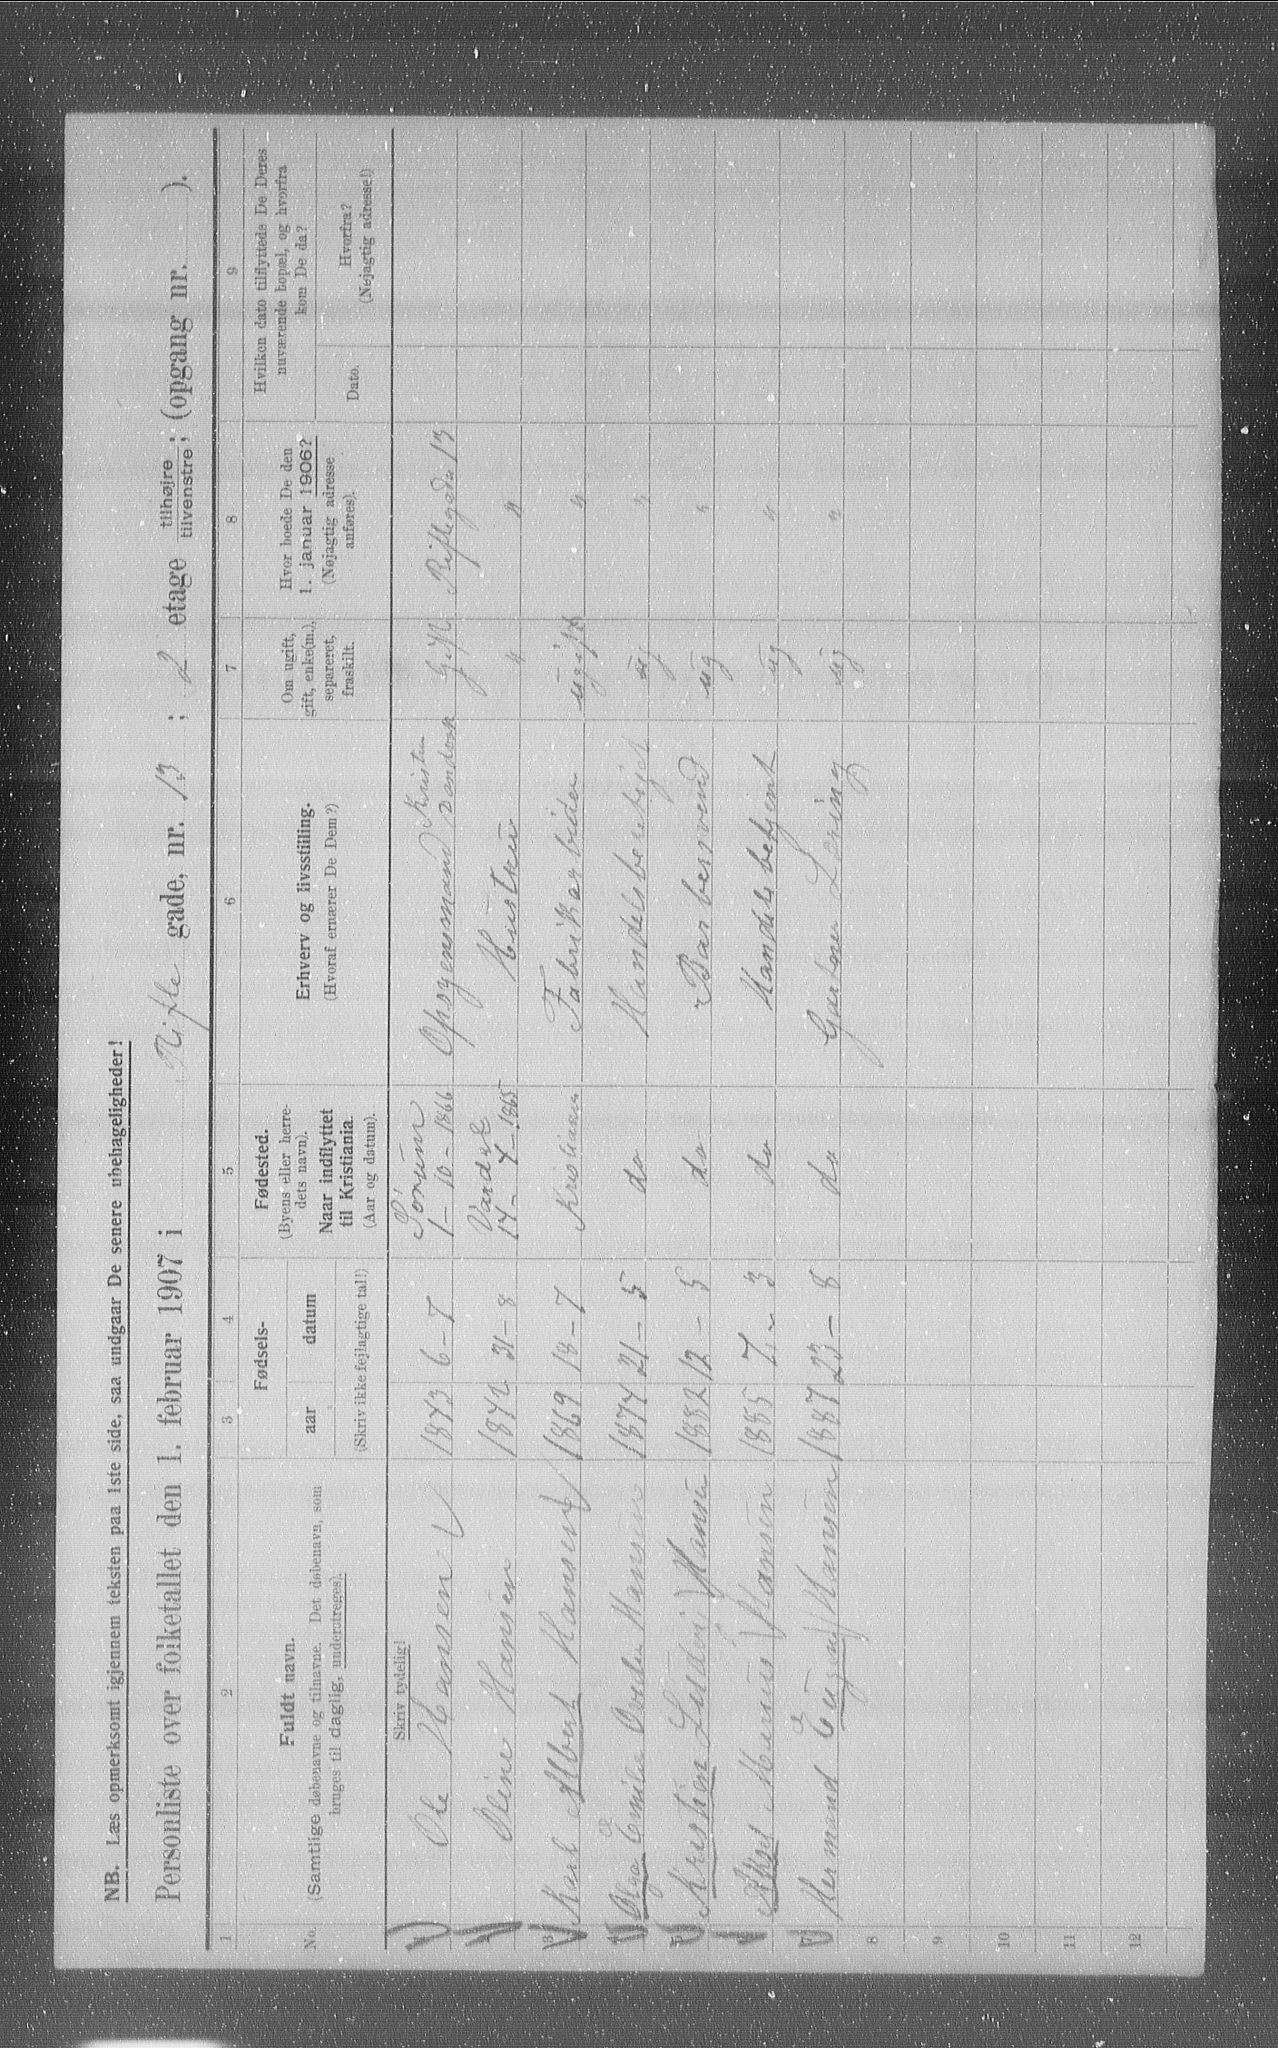 NB. Læs opmerksomt igjennem teksten paa 1ste side, saa undgaar De senere ubehageligheder!
Personliste over folketallet den 1. februar 1907 i Rifle gade, nr. 13 ; 2 etage tilhøjre tilvenstre ; (opgang nr. ).
1 2 3 4 5 6 7 8 9
No.
Fuldt navn.
(Samtlige døbenavne og tilnavne. Det døbenavn, som
bruges til daglig, understreges).
Fødsels-
aar datum
(Skriv ikke fejlagtige tal!)
Fødested.
(Byens eller herre-
dets navn).
Naar indflyttet
til Kristiania.
(Aar og datum).
Erhverv og livsstilling.
(Hvoraf ernærer De Dem?)
Om ugift,
gift, enke(m.),
separeret,
fraskilt.
Hvor boede De den
1. januar 1906?
(Nøjagtig adresse
anføres).
Hvilken dato tilflyttede De Deres
nuværende bopæl, og hvorfra
kom De da?
Dato.
Hvorfra?
(Nøjagtig adresse!)
Skriv tydelig!
1 Ole Hansen 1843 6-7 Sørum 1-10-1866 Opsynsmand Gift Riflegade 13
2 Oline Hansen 1842 31-8 1865 Hustru " "
3 Karl Albert Hansen 1869 18-7 Kristiania Fabrikarbider ugift "
4 Olga Emilie Hansen 1874 21-5 do ug "
5 Kristian Hansen 1882 12-5 do Barbersvend ug "
6 Hansen 1885 7-3 do Handelsbetjent ug "
7 Hermand Eugen Hansen 1887 23-8 do Gartner ug "
8
9
10
11
12